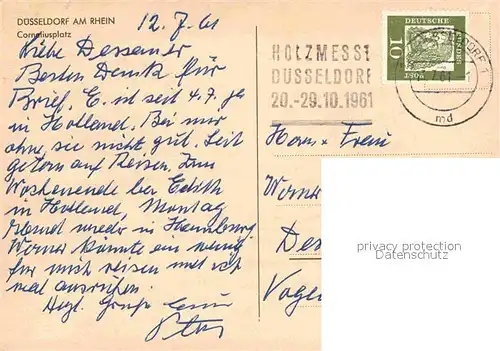 DÜSSELDORF AM RHEIN
Corneliusplatz
12. 7. 61
Liebe Dessauer
Besten Dank für
Brief. E. ist seit 4.7. ja
in Holland. Bei mir
ohne, sie nicht gut. Seit
gestern auf Reisen. Zum
Wochenende bei Edith
in Holland, Montag
Abend wieder in Hamburg
Werner könnte ein wenig
für mich reisen und ich
mal ausruhen.
Hzgl. Grüße Euer
HOLZMESSE
DÜSSELDORF
20.-29.10.1961
DEUTSCHE
BUNDESPOST
10
DÜSSELDORF 1
md
Herrn + Frau
Werner
Des
privacy protection
Datenschutz